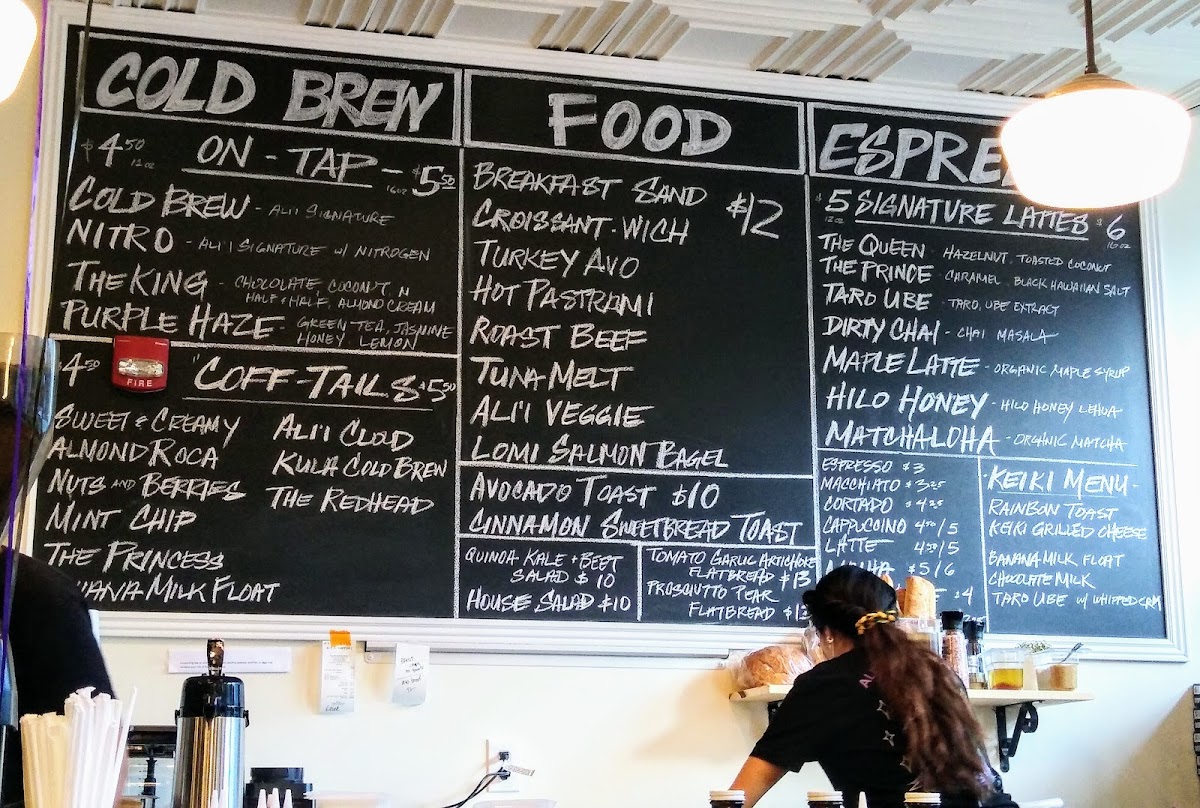 COLD BREW
$4.50 12oz ON-TAP - $5.50 16oz
COLD BREW - ALI'I SIGNATURE
NITRO - ALI'I SIGNATURE w/ NITROGEN
THE KING - CHOCOLATE, COCONUT, N
HALF+HALF, ALMOND CREAM
PURPLE HAZE - GREEN TEA, JASMINE
HONEY, LEMON
4.50 "COFF-TAILS $5.50
FIRE
SWEET & CREAMY
ALMOND ROCA
NUTS AND BERRIES
MINT CHIP
THE PRINCESS
MILK FLOAT
ALI'I CLOUD
KULA COLD BREW
THE REDHEAD
FOOD
BREAKFAST SAND $12
CROISSANT-WICH
TURKEY AVO
HOT PASTRAMI
ROAST BEEF
TUNA MELT
ALI'I VEGGIE
LOMI SALMON BAGEL
AVOCADO TOAST $10
CINNAMON SWEETBREAD TOAST
QUINOA KALE + BEET
SALAD $10
HOUSE SALAD $10
TOMATO GARLIC ARTICHOKE
FLATBREAD $13
PROSCIUTTO PEAR
FLATBREAD
ESPRE
$5 12oz SIGNATURE LATTES $6 16oz
THE QUEEN - HAZELNUT, TOASTED COCONUT
THE PRINCE - CARAMEL, BLACK HAWAIIAN SALT
TARO UBE - TARO, UBE EXTRACT
DIRTY CHAI - CHAI MASALA
MAPLE LATTE - ORGANIC MAPLE SYRUP
HILO HONEY - HILO HONEY LEHUA
MATCHALOHA - ORGANIC MATCHA
ESPRESSO $3
MACCHIATO $3.25
CORTADO $4.25
CAPPUCCINO 4.50/5
LATTE 4.50/5
$5/6
$4
KEIKI MENU -
RAINBOW TOAST
KEIKI GRILLED CHEESE
BANANA MILK FLOAT
CHOCOLATE MILK
TARO UBE w/ WHIPPED CRM